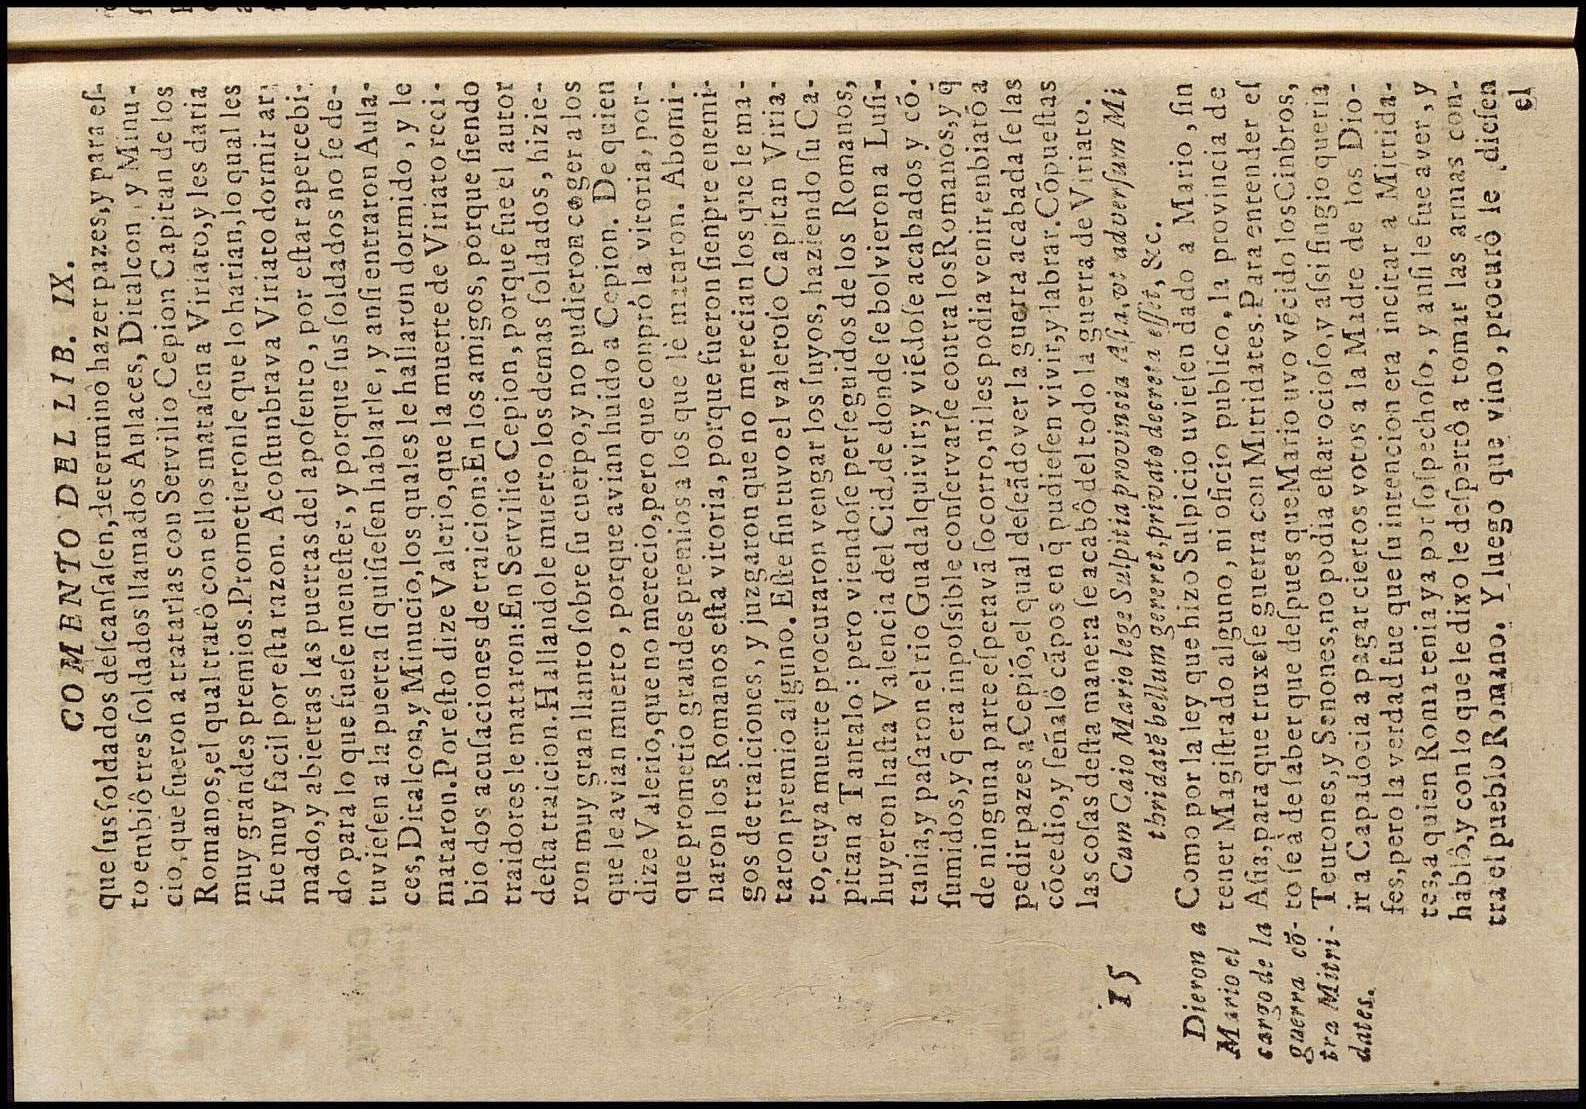 COMENTO DEL LIB. IX.
que sus soldados descansasen, determinô hazer pazes, y para es-
to enbiô tres soldados llamados Aulaces, Ditalcon, y Minu-
cio, que fueron a tratarlas con Servilio Cepion Capitan de los
Romanos, el qual tratô con ellos matasen a Viriato, y les daria
muy grandes premios. Prometieronle que lo harian, lo qual les
fue muy facil por esta razon. Acostunbrava Viriato dormir ar-
mado, y abiertas las puertas del aposento, por estar apercebi-
do para lo que fuese menester, y porque sus soldados no se de-
tuviesen a la puerta si quisiesen hablarle, y ansi entraron Aula-
ces, Ditalcon, y Minucio, los quales le hallaron dormido, y le
mataron. Por esto dize Valerio, que la muerte de Viriato reci-
bio dos acusaciones de traicion: En los amigos, porque siendo
traidores le mataron: En Servilio Cepion, porque fue el autor
desta traicion. Hallandole muerto los demas soldados, hizie-
ron muy gran llanto sobre su cuerpo, y no pudieron coger a los
que le avian muerto, porque avian huido a Cepion. De quien
dize Valerio, que no merecio, pero que conprô la vitoria, por-
que prometio grandes premios a los que le mataron. Abomi-
naron los Romanos esta vitoria, porque fueron sienpre enemi-
gos de traiciones, y juzgaron que no merecian los que le ma-
taron premio alguno. Este fin tuvo el valeroso Capitan Viria-
to, cuya muerte procuraron vengar los suyos, haziendo su Ca-
pitan a Tantalo: pero viendose perseguidos de los Romanos,
huyeron hasta Valencia del Cid, de donde se bolvieron a Lusi-
tania, y pasaron el rio Guadalquivir; y viēdose acabados y cō-
sumidos, y q̄ era inposible conservarse contra los Romanos, y q̄
de ninguna parte esperavā socorro, ni les podia venir, enbiarō a
pedir pazes a Cepiō, el qual deseādo ver la guerra acabada se las
cōcedio, y señalô cāpos en q̄ pudiesen vivir, y labrar. Cōpuestas
las cosas desta manera se acabô del todo la guerra de Viriato.
15 Cum Caio Mario lege Sulpitia provinsia Asia, vt adversum Mi
thridatē bellum gereret, privato decreta esset, &c.
Dieron a
Mario el
cargo de la
guerra cō-
tra Mitri-
dates.
Como por la ley que hizo Sulpicio uviesen dado a Mario, sin
tener Magistrado alguno, ni oficio publico, la provincia de
Asia, para que truxese guerra con Mitridates. Para entender es
to se à de saber que despues que Mario uvo vēcido los Cinbros,
Teutones, y Senones, no podia estar ocioso, y asi fingio queria
ir a Capadocia a pagar ciertos votos a la Madre de los Dio-
ses, pero la verdad fue que su intencion era incitar a Mitrida-
tes, a quien Roma tenia ya por sospechoso, y ansi le fue a ver, y
hablô, y con lo que le dixo le despertô a tomar las armas con-
tra el pueblo Romano. Y luego que vino, procurô le diesen
el